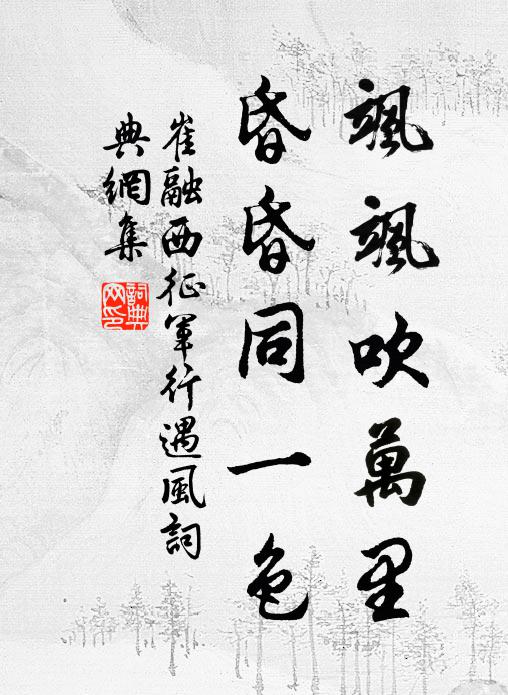 颯颯吹萬里
昏昏同一色
崔融西征軍行遇風詞
典網集
詞典網印